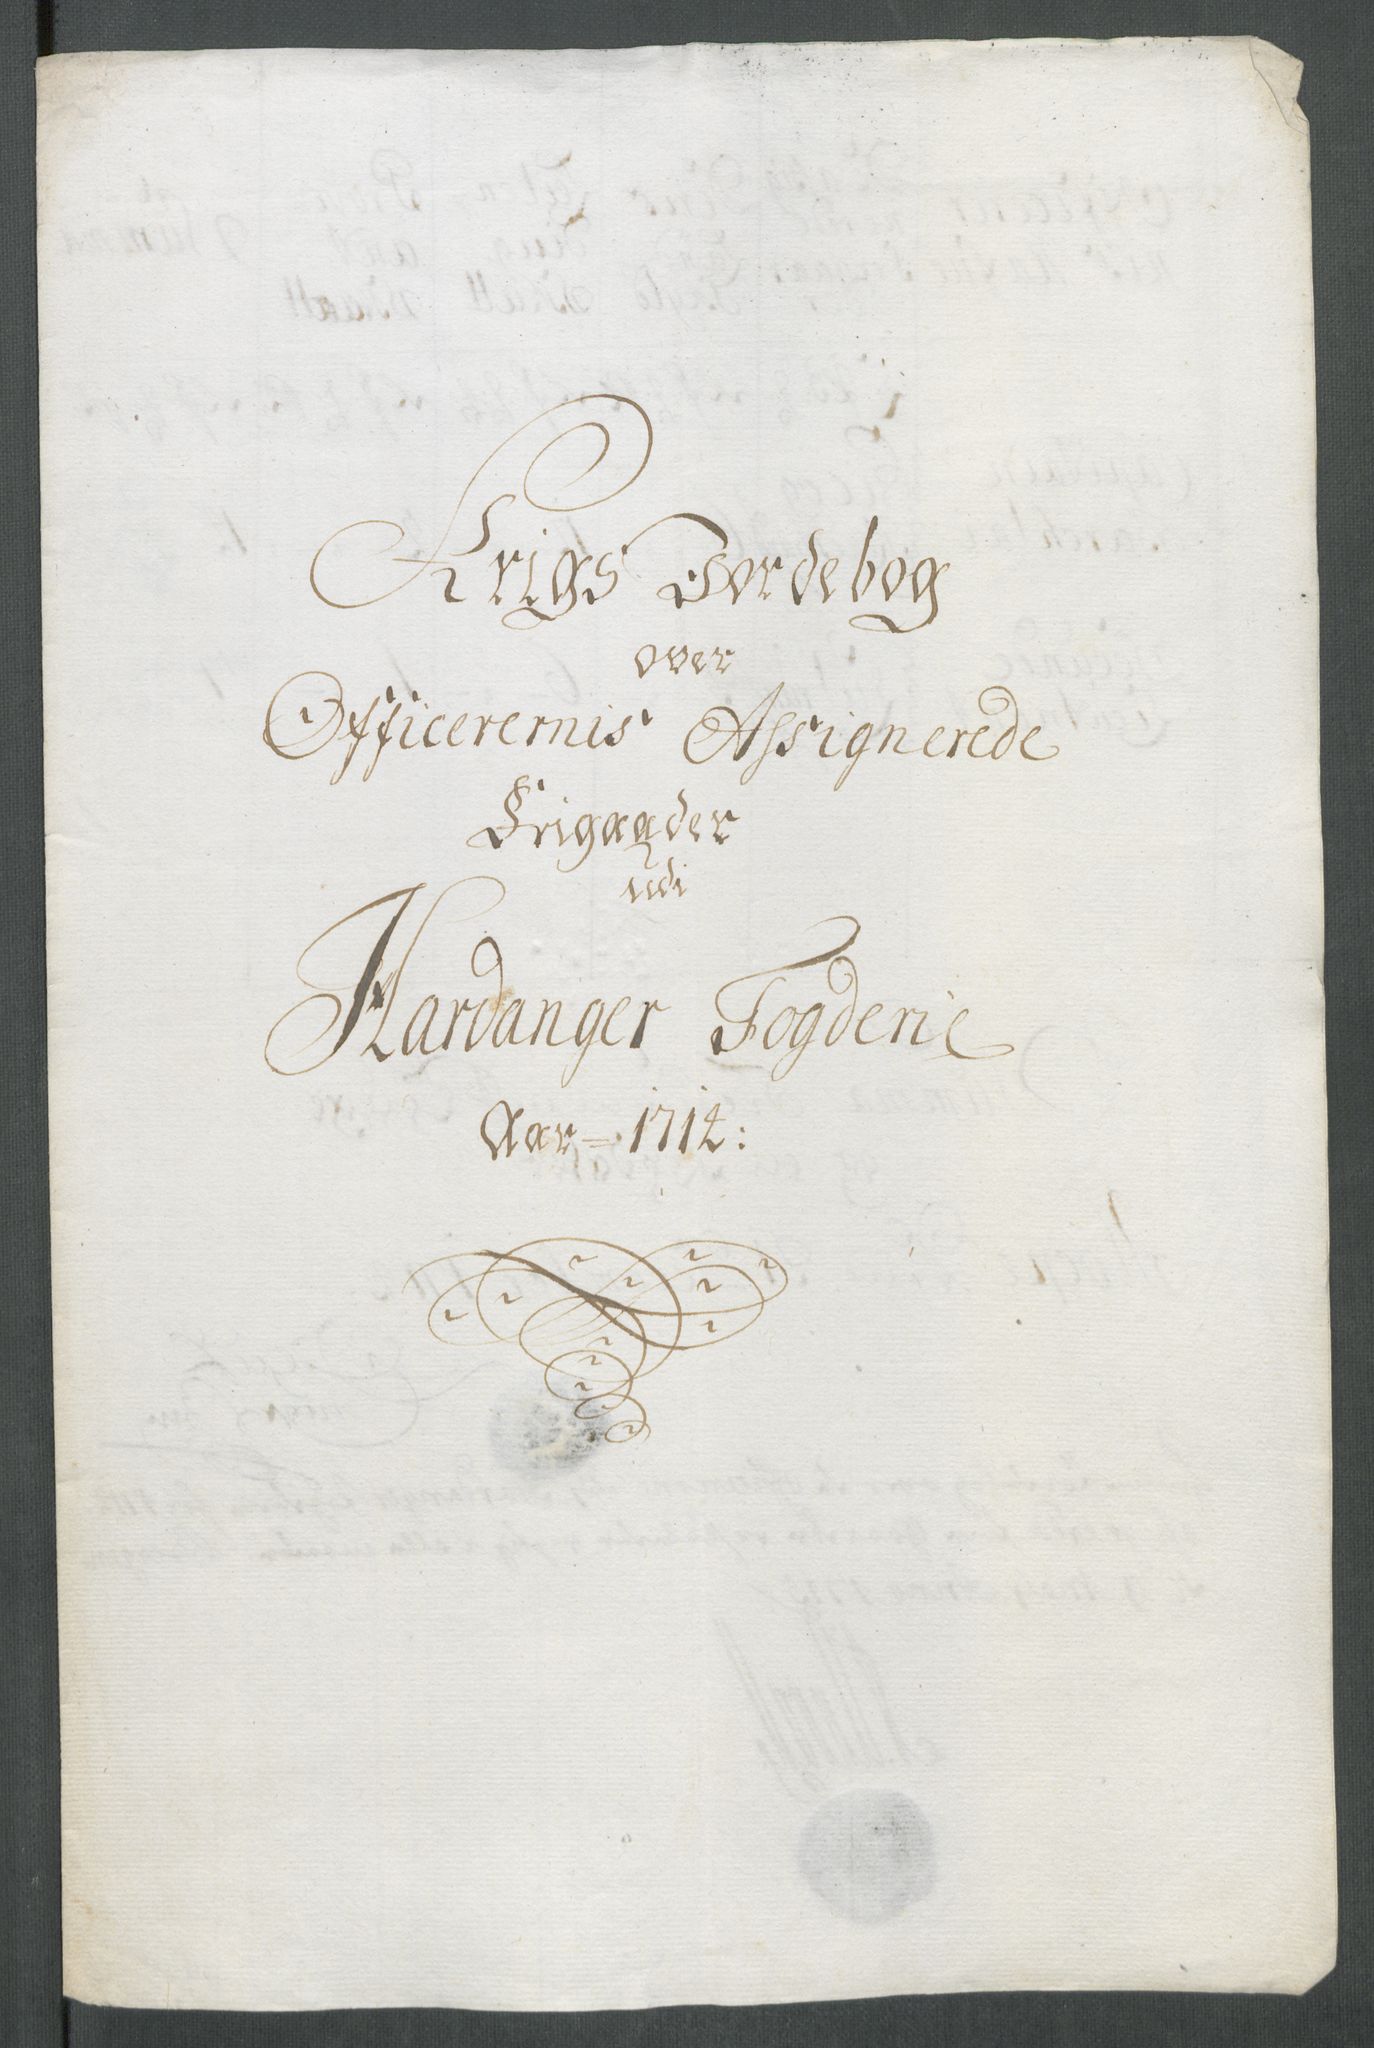 Krigs Jordebog
over
Officerernis Assignerede
Frigaarder
udi
Hardanger Fogderie
Aar 1714: